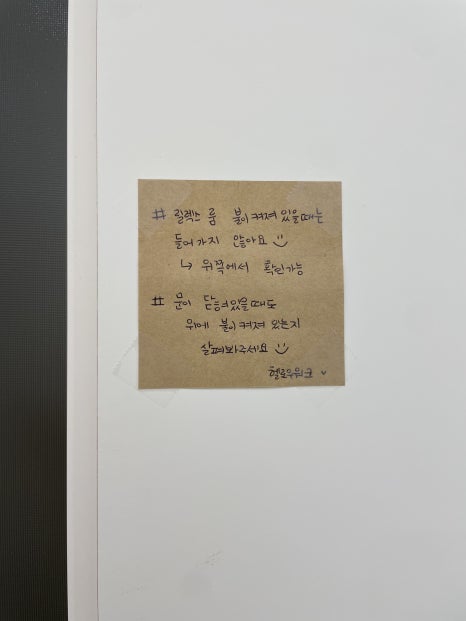 # 릴렉스 룸 불이 켜져 있을때는
들어가지 않아요 :)
↳ 위쪽에서 확인가능
# 문이 닫혀있을때도
위에 불이 켜져 있는지
살펴봐주세요 :)
헬로우워크